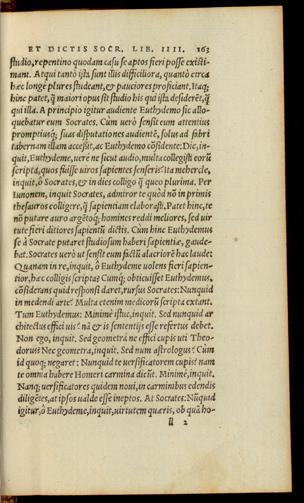 ET DICTIS SOCR. LIB. IIII. 163
studio, repentino quodam casu se aptos fieri posse existi-
mant. Atqui tantò ista sunt illis difficiliora, quantò circa
hæc longè plures studeant, & pauciores proficiant. Itaq;
hinc patet, q̃ maiori opus sit studio his qui ista desiderẽt, q̃
qui illa. A principio igitur audiente Euthydemo sic allo-
quebatur eum Socrates. Cùm uerò sensit eum attentius
promptiusq́; suas disputationes audientẽ, solus ad fabri
tabernam illam accessit, ac Euthydemo cõsidente: Dic, in-
quit, Euthydeme, uerè ne sicut audio, multa collegisti eorũ
scripta, quos fuisse uiros sapientes senseris? Ita mehercle,
inquit, ô Socrates, & in dies colligo q̃ queo plurima. Per
Iunonem, inquit Socrates, admiror te quòd nõ in primis
thesauros colligere, q̃ sapientiam elaborasti. Patet hinc, te
nõ putare auro argẽtoq́; homines reddi meliores, sed uir
tute fieri ditiores sapientũ dictis. Cùm hinc Euthydemus
se à Socrate putaret studiosum haberi sapientiæ, gaude-
bat. Socrates uerò ut sensit eum factũ alacriorẽ hac laude:
Quanam in re, inquit, ô Euthydeme uolens fieri sapien-
tior, hæc colligis scripta? Cumq́; obticuisset Euthydemus,
cõsiderans quid respõsi daret, rursus Socrates: Nunquid
in medendi arte? Multa etenim medicorũ scripta extant.
Tum Euthydemus: Minimè istuc, inquit. Sed nunquid ar
chitectus effici uis? nã & is sententijs esse refertus debet.
Non ego, inquit. Sed geometra ne effici cupis uti Theo-
dorus? Nec geometra, inquit. Sed num astrologus? Cùm
id quoq; negaret: Nunquid te uersificatorem cupis? nam
te omnia habere Homeri carmina dicũt. Minimè, inquit.
Nanq; uersificatores quidem noui, in carminibus edendis
diligẽtes, at ipsos ualde esse ineptos. At Socrates: Nũquid
igitur, ô Euthydeme, inquit, uirtutem quæris, ob quã ho-
ll 2